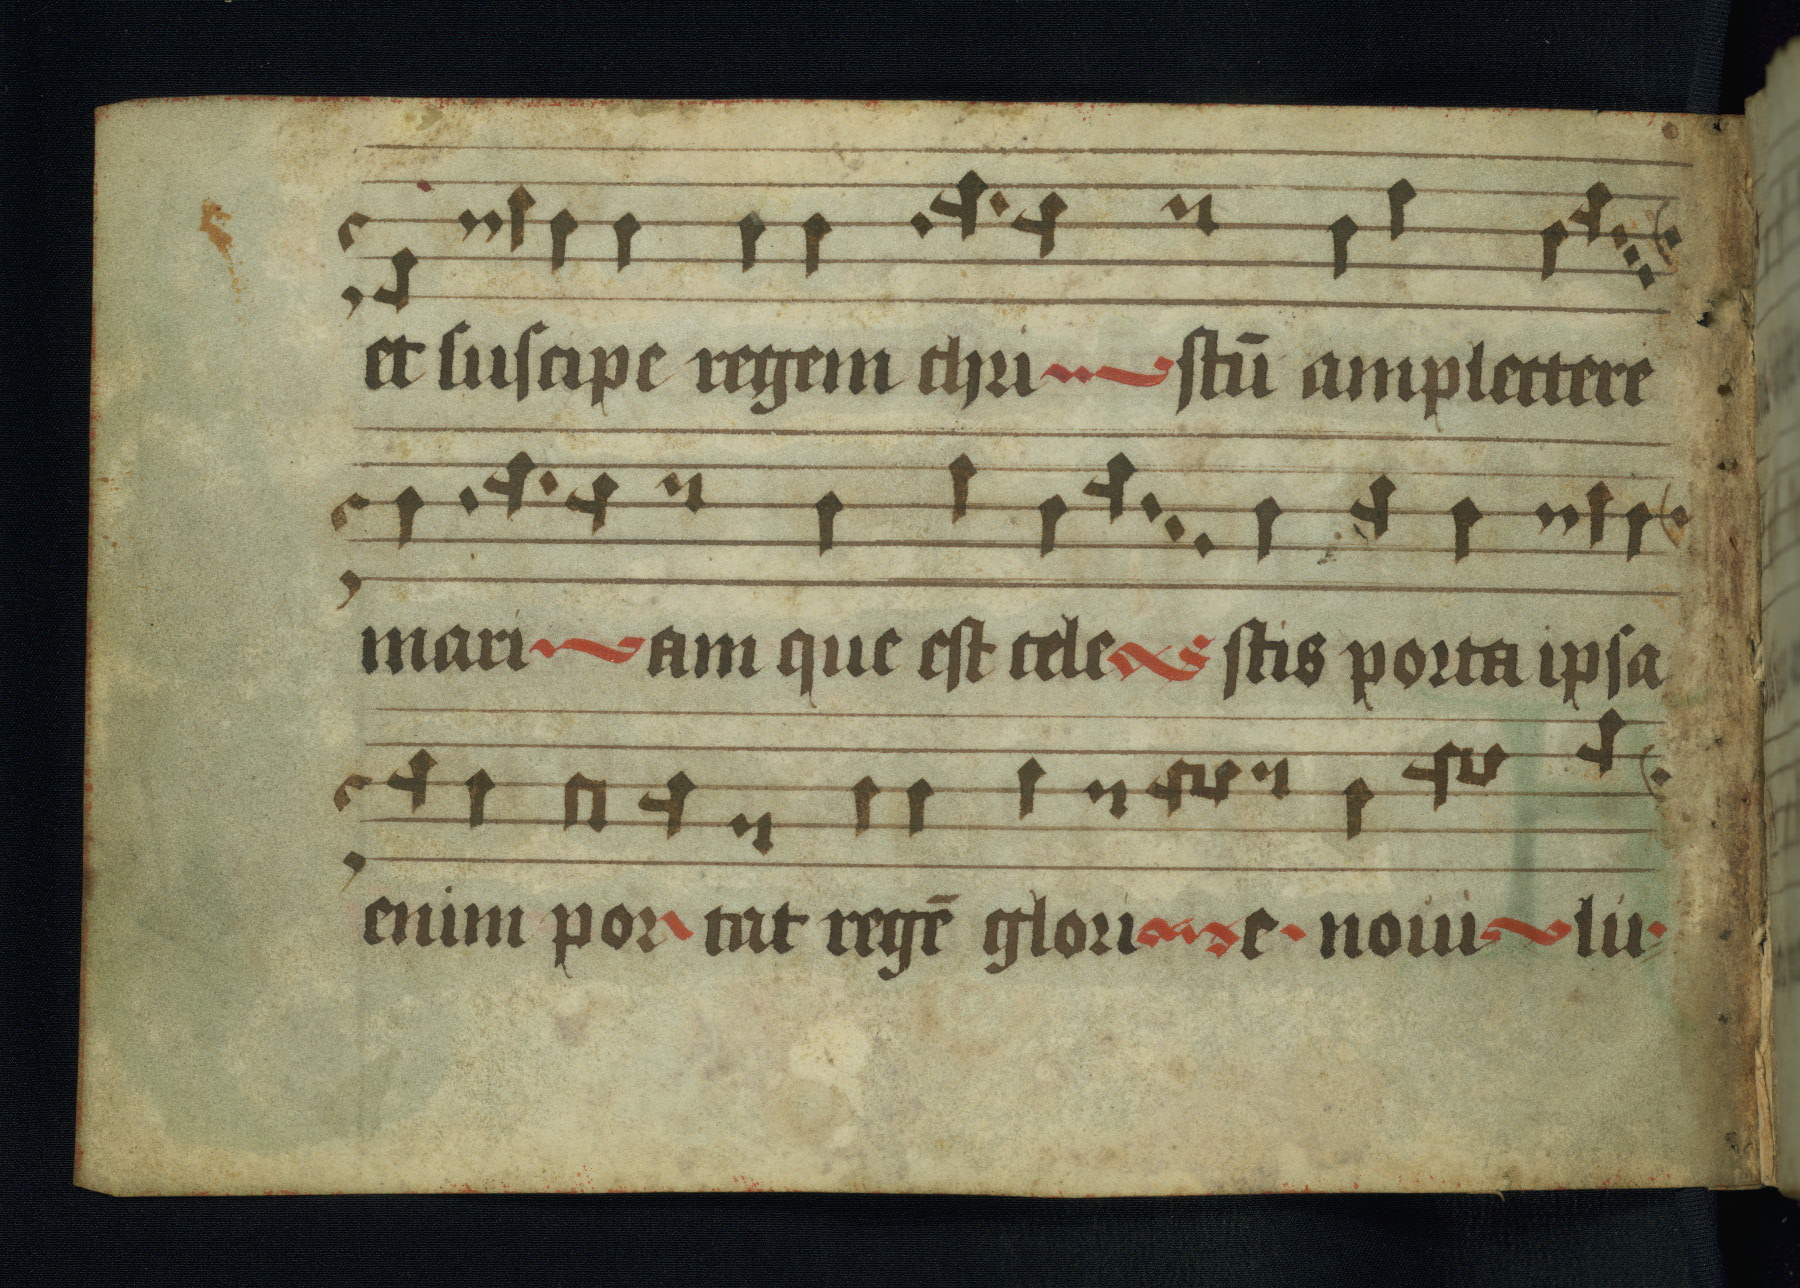 et suscipe regem chri stū amplectere
mari am que est cele stis porta ipsa
enim por tat regē glori e noui lu